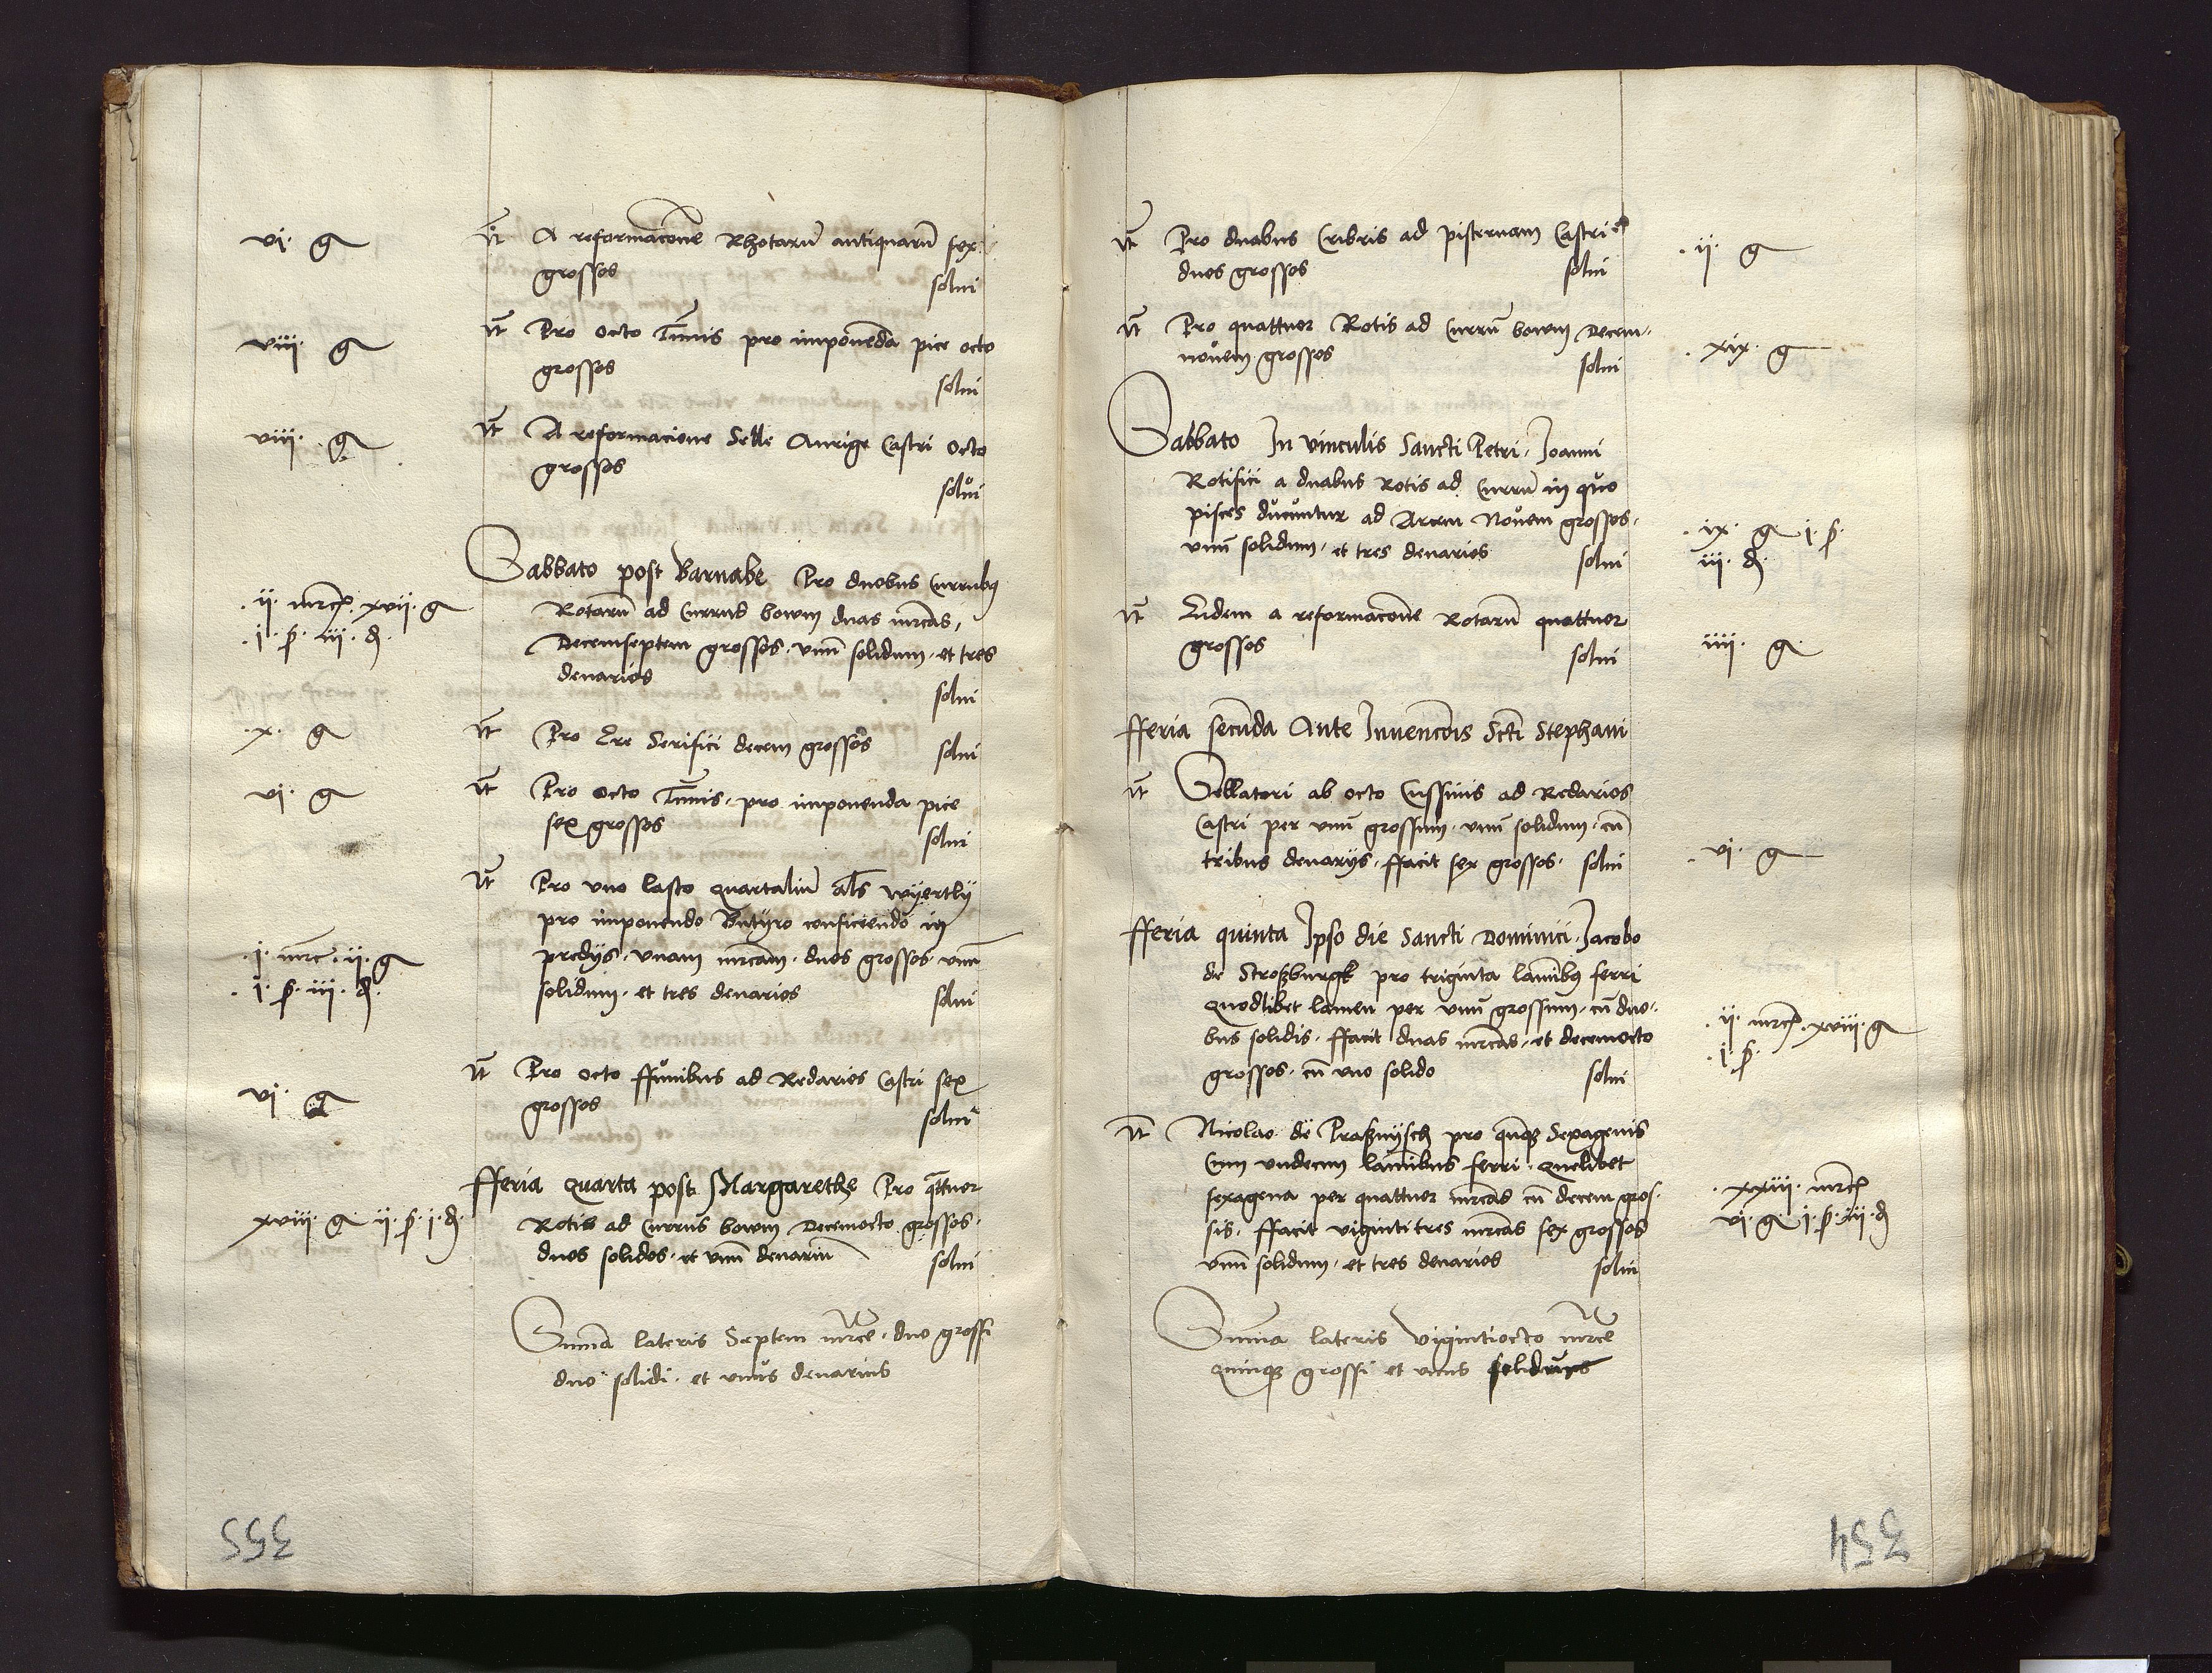 vi · g
Jt A reformacione Rhotarū antiquarū sex
grossos
solui
viii · g
Jt Pro octo Tunnis pro imponenda pice octo
grossos
solui
viii · g
Jt A reformacione Selle Aurige Castri octo
grossos
solui
Sabbato post Barnabe Pro duobus Curribus
· ii · mrc · xvii · g
Rotarū ad Currus bowm duas mrcas ·
· i · ß · iii · d ·
Decemseptem grossos · vnū solidum · et tres
denarios
solui
· x · g
Jt Pro Ere Serifici decem grossos
solui
vi · g
Jt Pro octo Tunnis · pro imponenda pice
sex grossos
solui
Jt Pro vno lasto quartaliū als wyertly
pro imponendo Butyro conficiendo in
· i · mrc · ii · g
predijs · vnam mrcam · duos grossos · vnū
· i · ß · iii · d ·
solidum · et tres denarios
solui
vi · g
Jt Pro octo ffunibus ad Redarios Castri sex
grossos
solui
fferia quarta post Margarethe Pro qttuor
xviii · g · ii · ß · i · d ·
Rotis ad Currus bowm Decemocto grossos ·
duos solidos · et vnū denariū
solui
Summa lateris Septem mrce · duo grossi
duo solidi · et vnus denarius
355
Jt Pro duabus Cribris ad pisternam Castri
· ii · g
duos grossos
solui
Jt Pro quattuor Rotis ad Currū bowm Decem-
· xix · g
nouem grossos
solui
Sabbato In vinculis Sancti Petri · Joanni
Rotifici a duabus Rotis ad Currū in quo
pisces ducuntur ad Arcem Nouem grossos ·
· ix · g · i · ß ·
vnū solidum · et tres denarios
solui
iii · d ·
Jt Eidem a reformacione Rotarū quattuor
iiii · g
grossos
solui
fferia secunda Ante Invencōis Scti Stephani
Jt Sellatori ab octo Cussinis ad Redarios
Castri per vnū grossum · vnū solidum · cū
tribus denarijs · ffacit sex grossos · solui
· vi · g
fferia quinta Ipso die Sancti Dominici · Jacobo
de Stroszburgk pro triginta laminibus ferri
quodlibet lamen per vnū grossum · cū duo-
· ii · mrc · xviii · g
bus solidis · ffacit duas mrcas · et decemocto
· i · ß ·
grossos · cū vno solido
solui
Jt Nicolao de Prasznysch pro quinque Sexagenis
Cum vndecim laminibus ferri · quelibet
sexagena per quattuor mrcas cū decem gros-
· xxiii · mrc
sis · ffacit viginti tres mrcas sex grossos
vi · g · i · ß · iii · d
vnū solidum · et tres denarios
solui
Summa lateris vigintiocto mrce
quinque grossi et vnus solidus
354